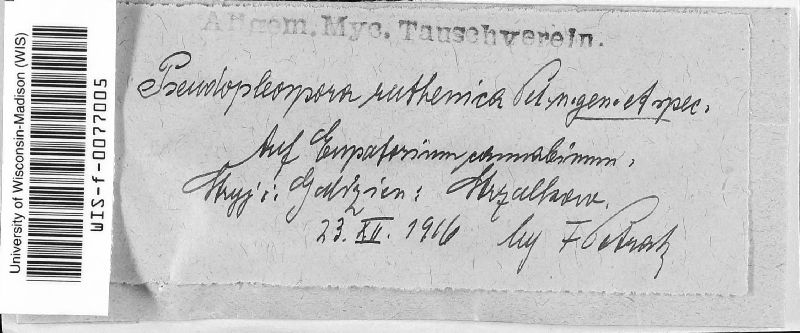 University of Wisconsin-Madison (WIS)
WIS-f-0077005
Allgem. Myc. Tauschverein.
Pseudopleospora ruthenica Pet. n. gen. et spec.
Auf Eupatorium cannabinum.
Stryj: Galizien: Strzalkow.
23. XII. 1916 leg F. Petrak